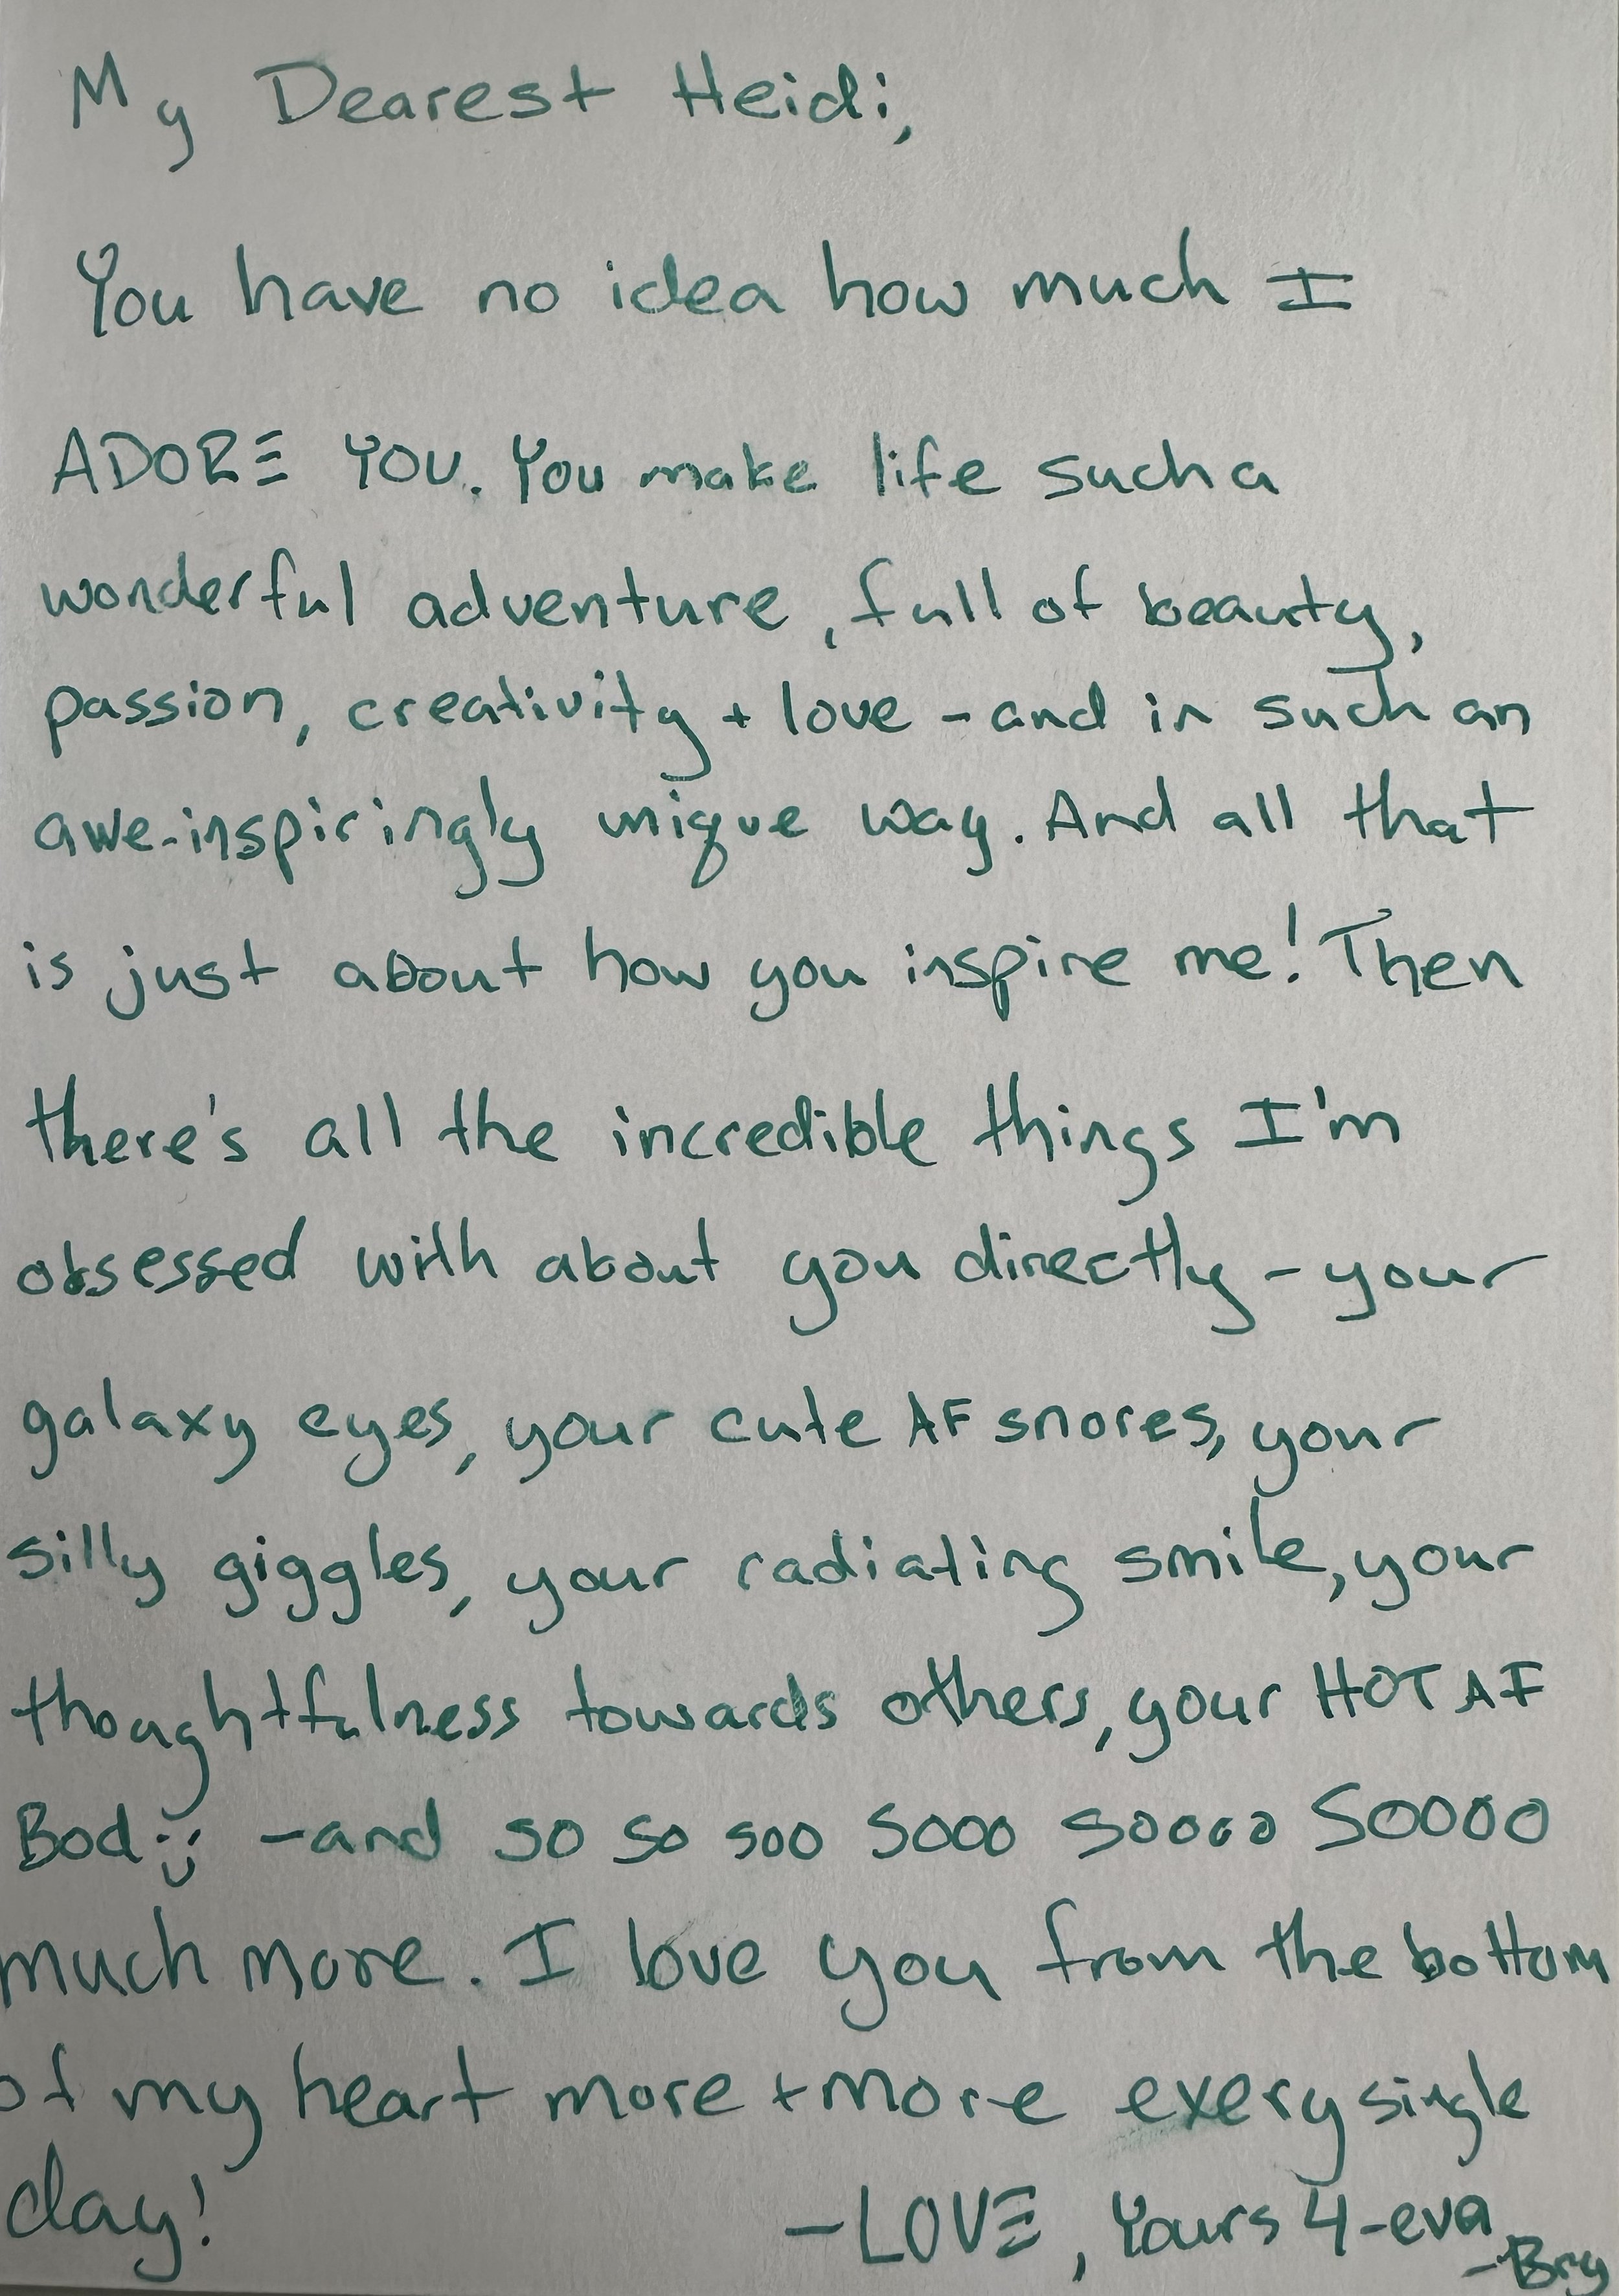 My Dearest Heidi,
You have no idea how much I
ADORE YOU. You make life such a
wonderful adventure, full of beauty,
passion, creativity + love - and in such an
awe-inspiringly unique way. And all that
is just about how you inspire me! Then
there's all the incredible things I'm
obsessed with about you directly - your
galaxy eyes, your cute AF snores, your
silly giggles, your radiating smile, your
thoughtfulness towards others, your HOT AF
Bod ;) - and so so soo sooo soooo SOOOO
much more. I love you from the bottom
of my heart more + more every single
day!
- LOVE, Yours 4-eva
- Bry